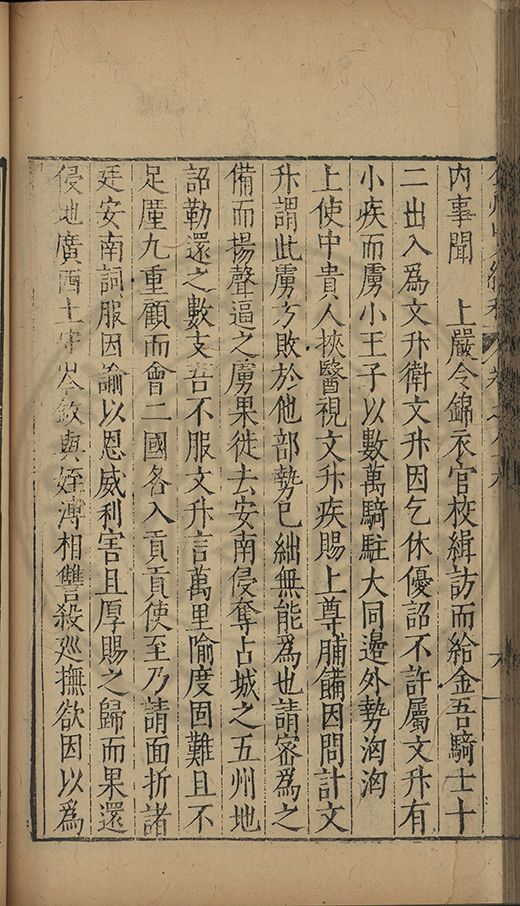 内事聞　上嚴令錦衣官校緝訪而給金吾騎士十
二出入爲文升衛文升因乞休優詔不許屬文升有
小疾而虜小王子以數萬騎駐大同邊外勢洶洶
上使中貴人挾醫視文升疾賜上尊脯饈因問計文
升謂此虜方敗於他部勢已絀無能爲也請密爲之
備而揚聲逼之虜果徙去安南侵奪占城之五州地
詔勒還之數支吾不服文升言萬里隃度固難且不
足厪九重顧而會二國各入貢貢使至乃請面折諸
廷安南詞服因諭以恩威利害且厚賜之歸而果還
侵地廣西土守岑欽與姪溥相讐殺巡撫欲因以爲